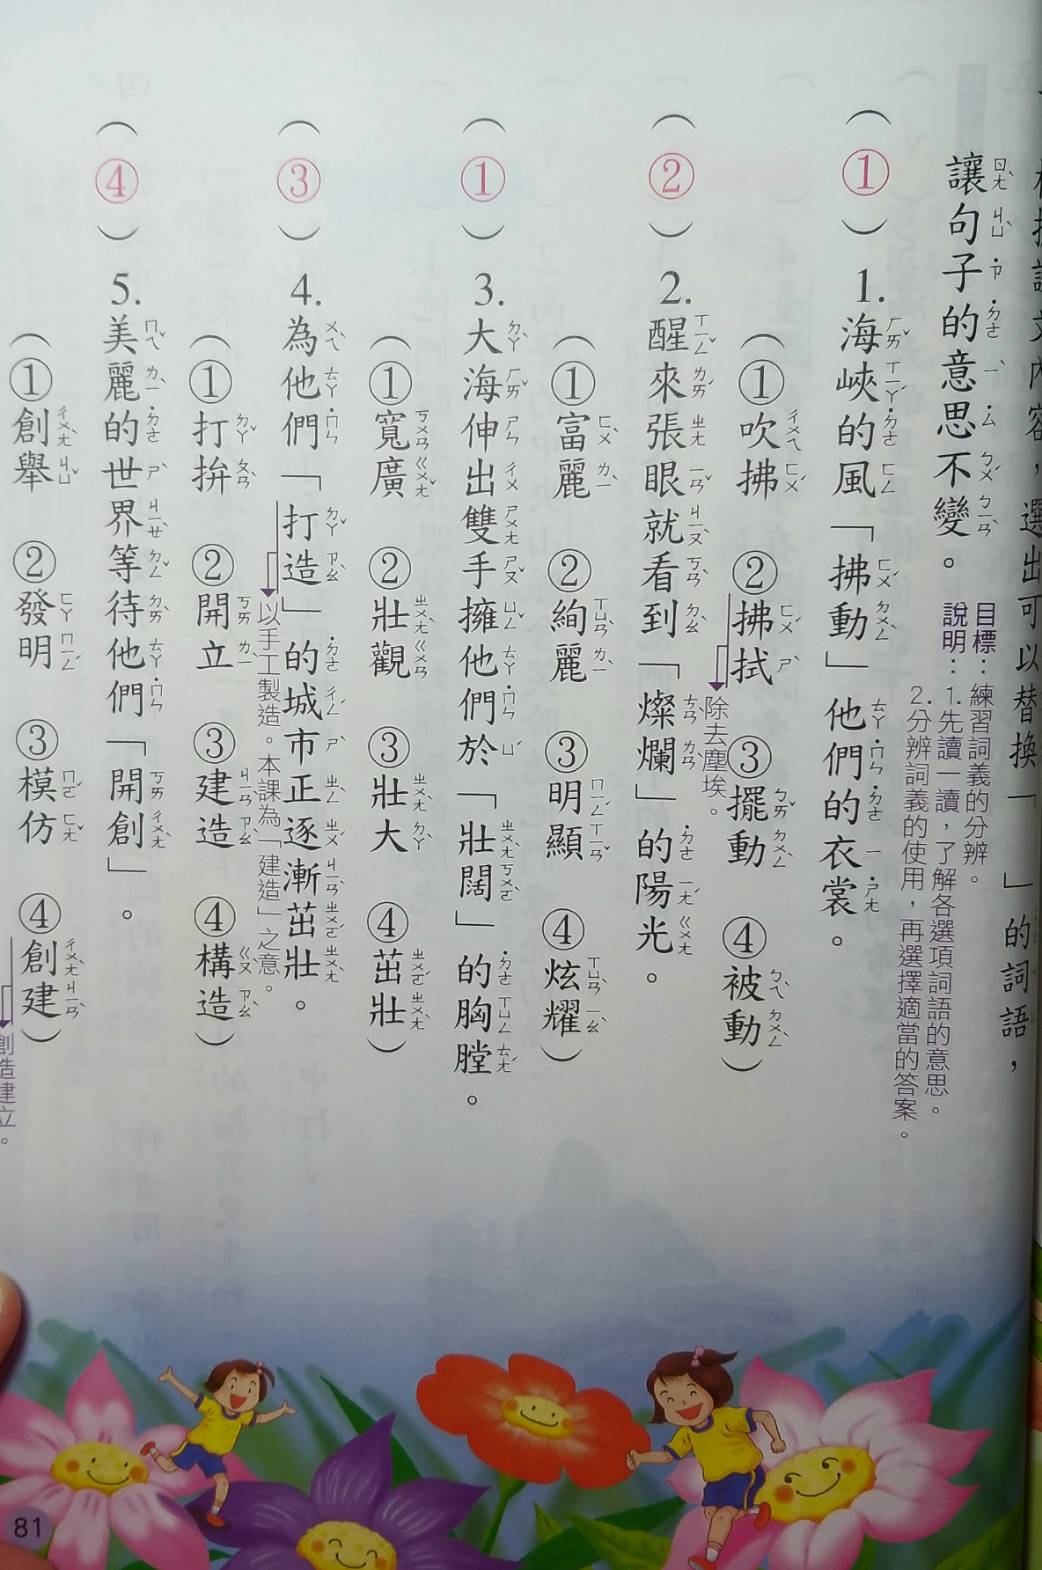 根據課文內容，選出可以替換「　」的詞語，
讓句子的意思不變。
目標：練習詞義的分辨。
說明：1.先讀一讀，了解各選項詞語的意思。
2.分辨詞義的使用，再選擇適當的答案。
（①）1.海峽的風「拂動」他們的衣裳。
（①吹拂　②拂拭　③擺動　④被動）
除去塵埃。
（②）2.醒來張眼就看到「燦爛」的陽光。
（①富麗　②絢麗　③明顯　④炫耀）
（①）3.大海伸出雙手擁他們於「壯闊」的胸膛。
（①寬廣　②壯觀　③壯大　④茁壯）
（③）4.為他們「打造」的城市正逐漸茁壯。
以手工製造。本課為「建造」之意。
（①打拚　②開立　③建造　④構造）
（④）5.美麗的世界等待他們「開創」。
（①創舉　②發明　③模仿　④創建）
創造建立。
81